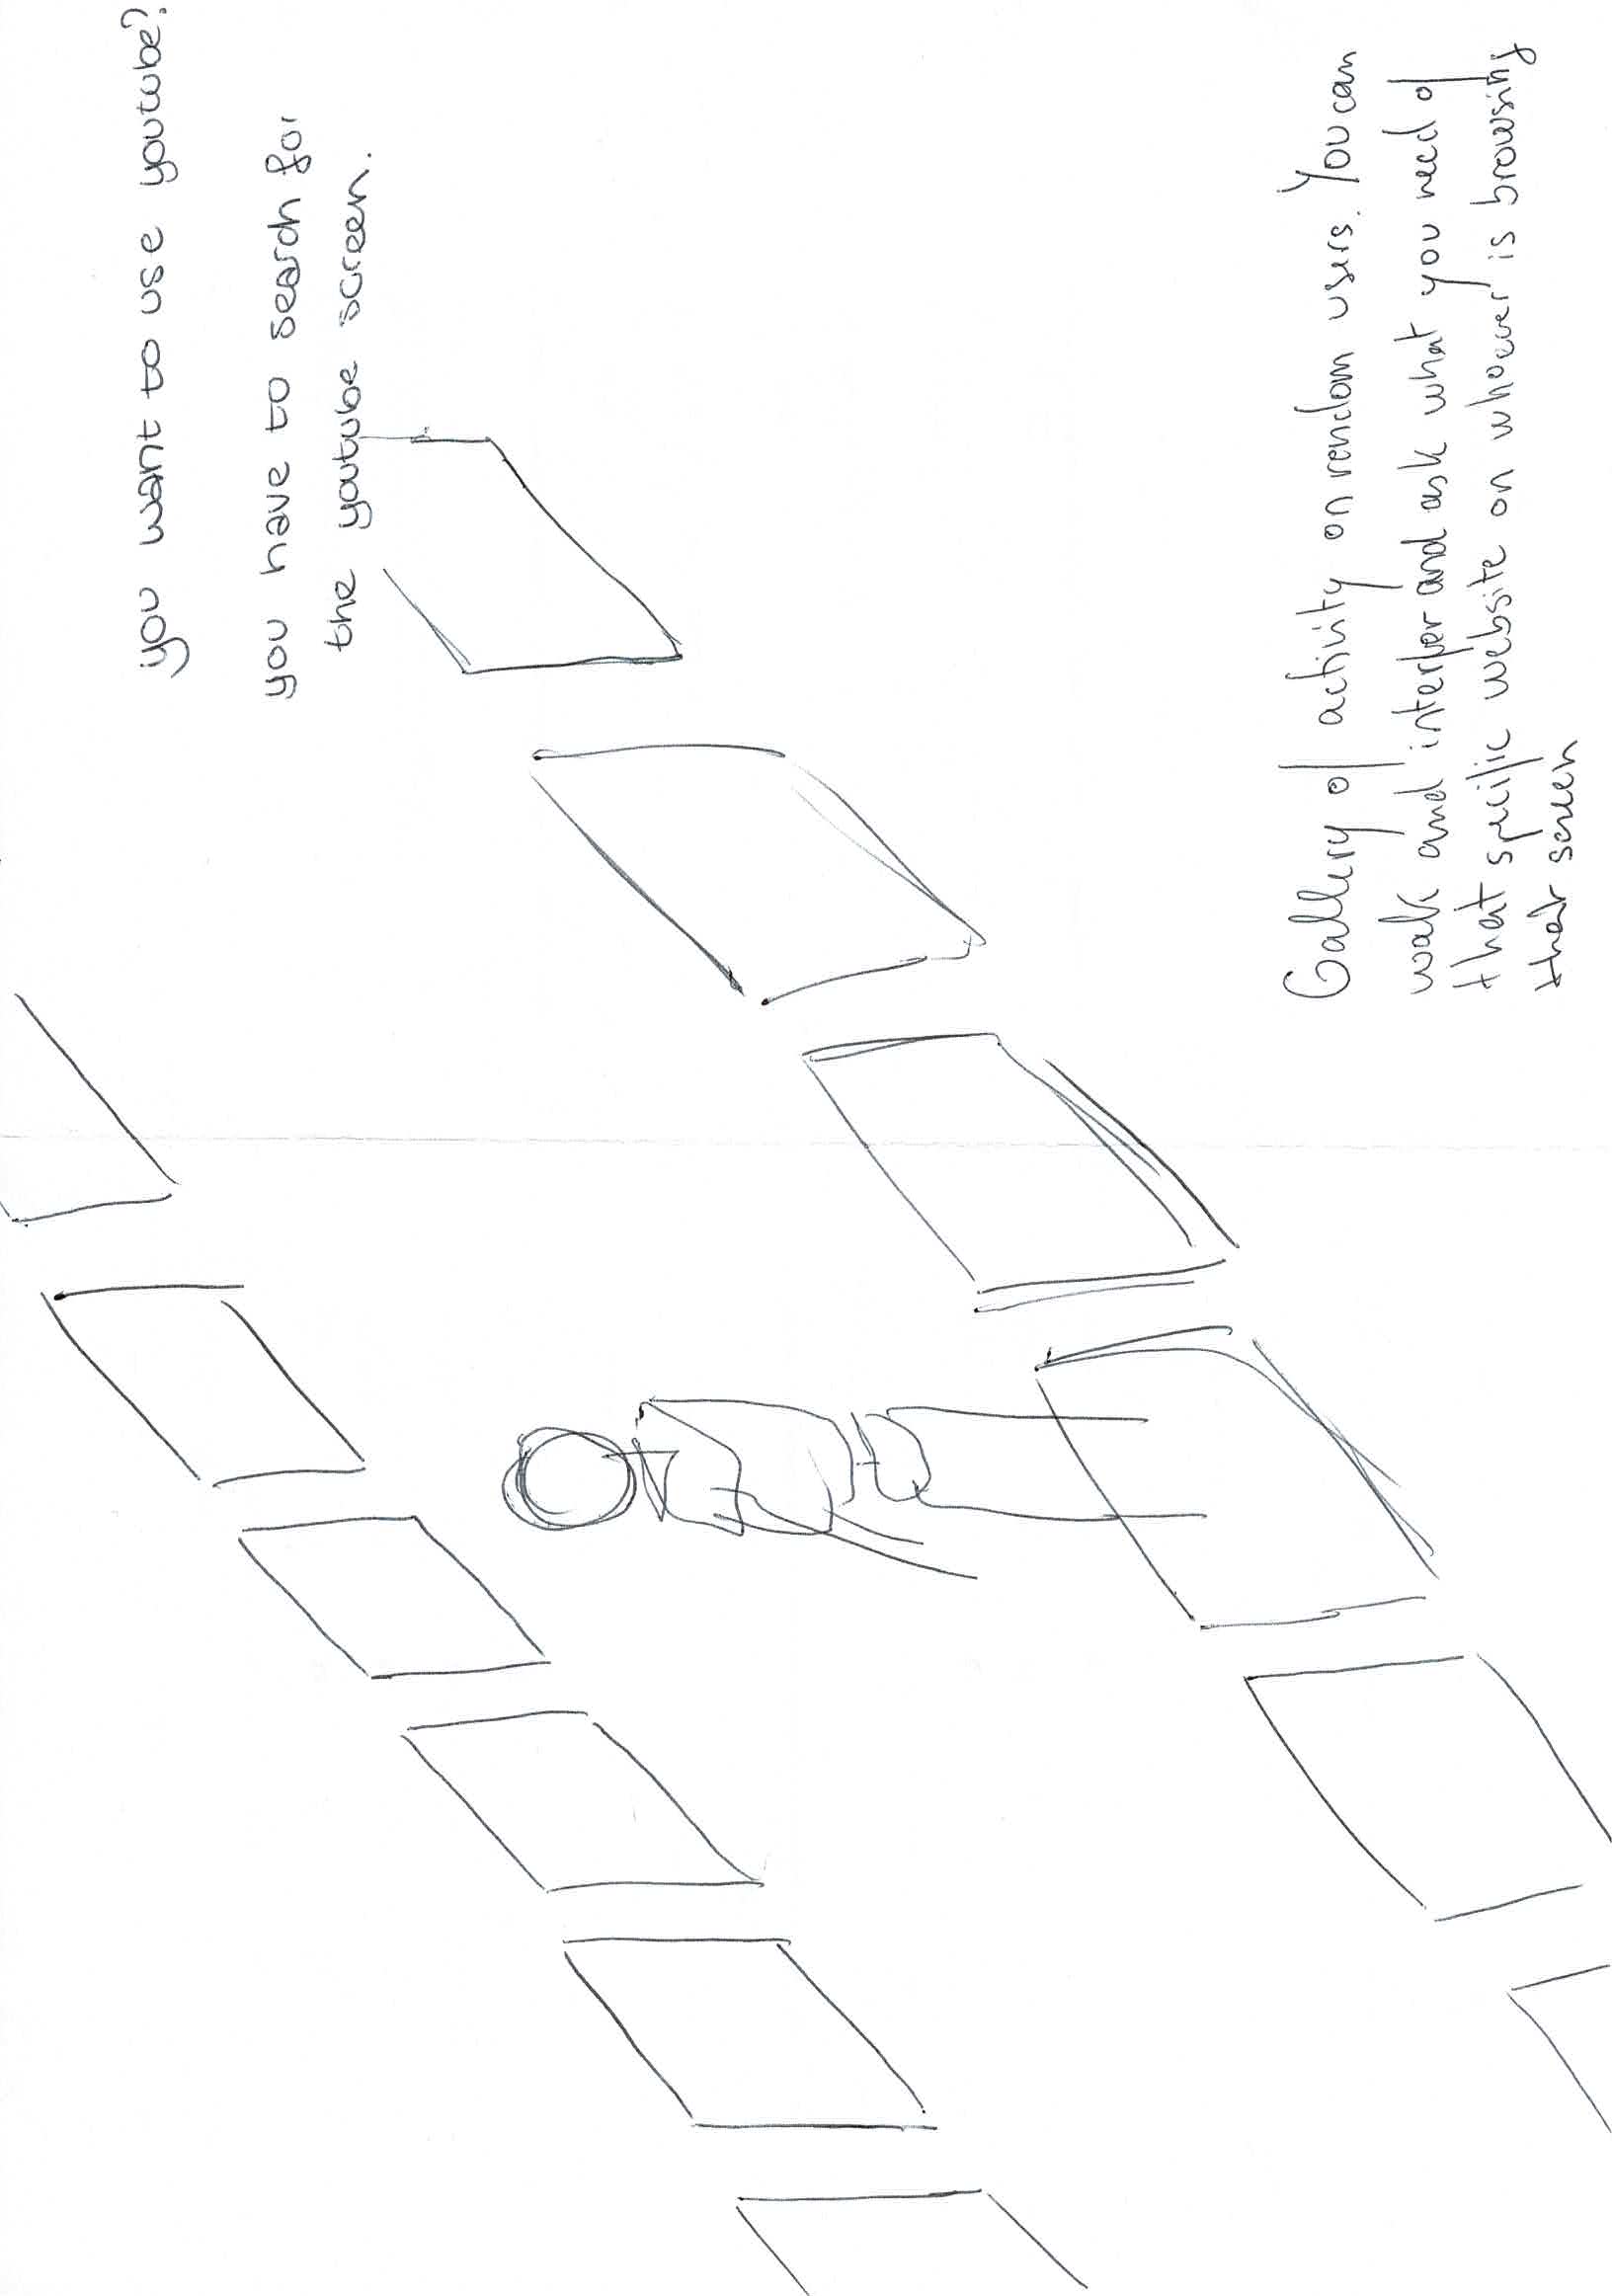 you want to use youtube?
you have to search for
the youtube screen.
Gallery of activity on random users. You can
walk and interfer and ask what you need of
that specific website on whoever is browsing
that screen